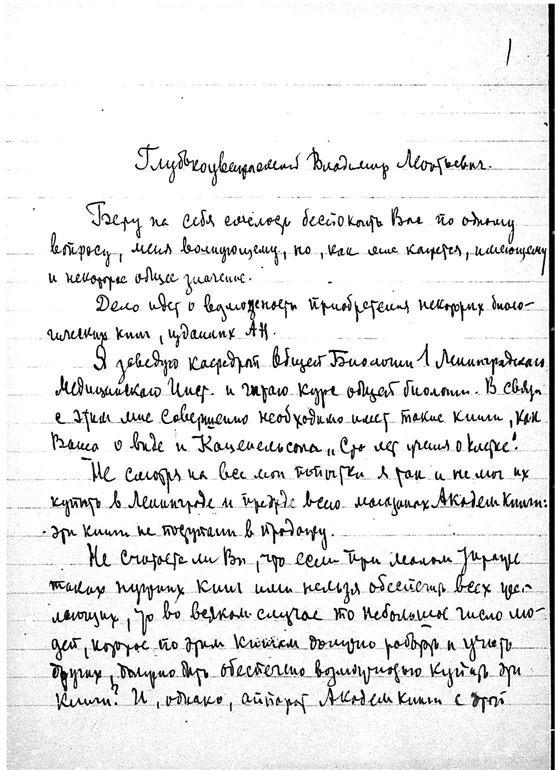 1
Глубокоуважаемый Владимир Леонтьевич.
Беру на себя смелость беспокоить Вас по одному
вопросу, меня волнующему, но, как мне кажется, имеющему
и некоторое общее значение.
Дело идет о возможности приобретения некоторых биоло-
гических книг, изданных АН.
Я заведую кафедрой Общей Биологии 1 Ленинградского
Медицинского Инст. и читаю курс общей биологии. В связи
с этим мне совершенно необходимо иметь такие книги, как
Ваша о виде и Кацнельсона „Сто лет учения о клетке".
Не смотря на все мои попытки я так и не мог их
купить в Ленинграде и прежде всего магазинах Академкниги:
эти книги не поступали в продажу.
Не считаете ли Вы, что если при малом тираже
таких нужных книг или нельзя обеспечить всех же-
лающих, то во всяком случае то небольшое число лю-
дей, которое по этим книгам должно работать и учить
других, должно быть обеспечено возможностью купить эти
книги? И, однако, аппарат Академкниги с этой